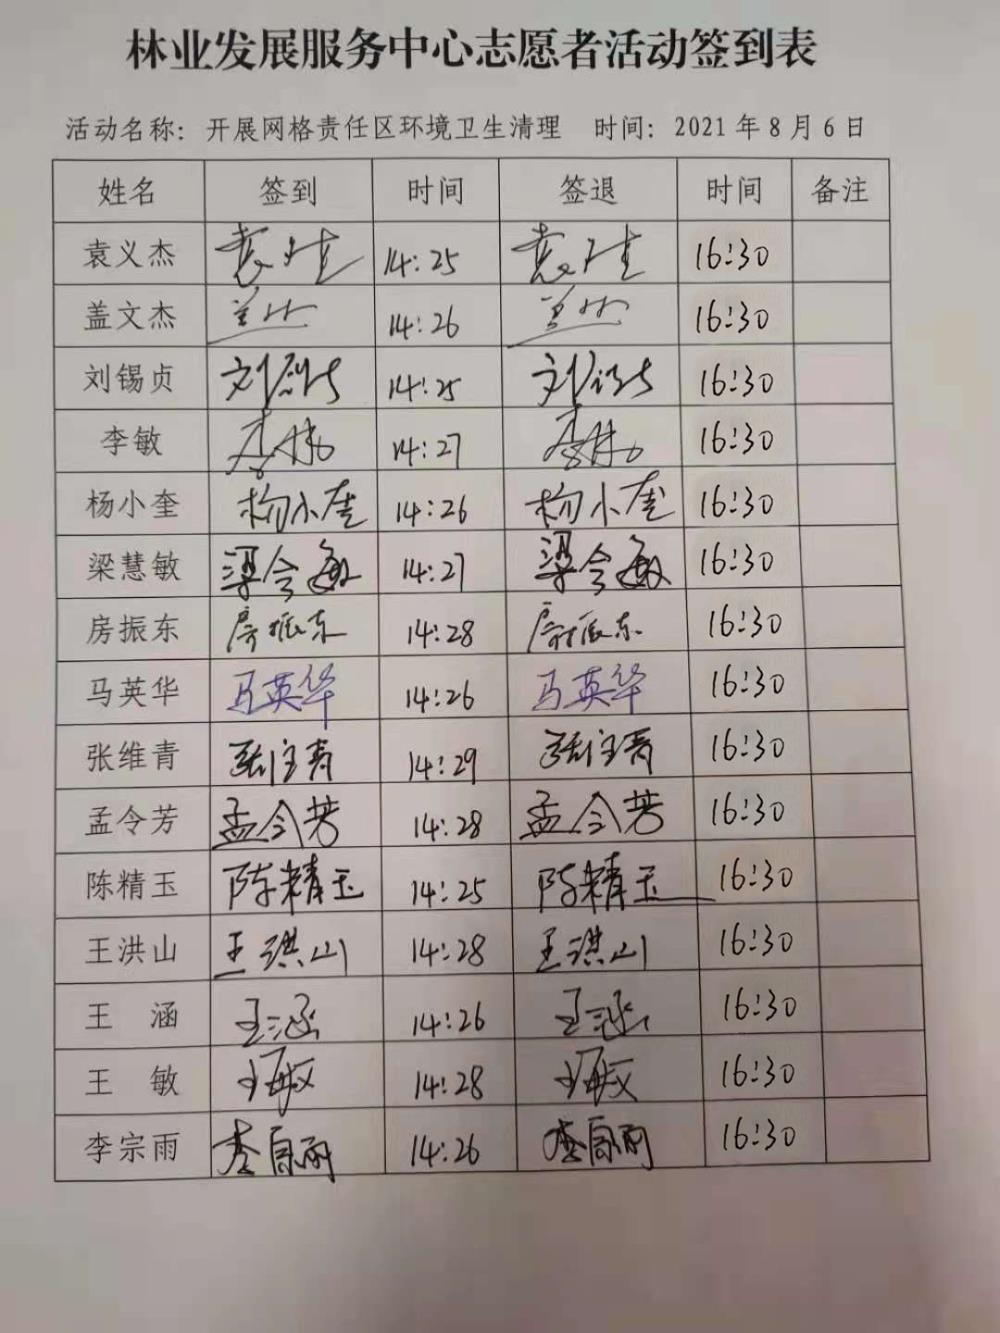 林业发展服务中心志愿者活动签到表
活动名称：开展网格责任区环境卫生清理 时间：2021年8月6日
姓名 签到 时间 签退 时间 备注
袁义杰 14:25 16:30
盖文杰 14:26 16:30
刘锡贞 14:25 16:30
李敏 李敏 14:27 李敏 16:30
杨小奎 杨小奎 14:26 杨小奎 16:30
梁慧敏 14:27 16:30
房振东 房振东 14:28 房振东 16:30
马英华 马英华 14:26 马英华 16:30
张维青 张维青 14:29 张维青 16:30
孟令芳 孟令芳 14:28 孟令芳 16:30
陈精玉 陈精玉 14:25 陈精玉 16:30
王洪山 王洪山 14:28 王洪山 16:30
王 涵 王涵 14:26 王涵 16:30
王 敏 王敏 14:28 王敏 16:30
李宗雨 李宗雨 14:26 李宗雨 16:30